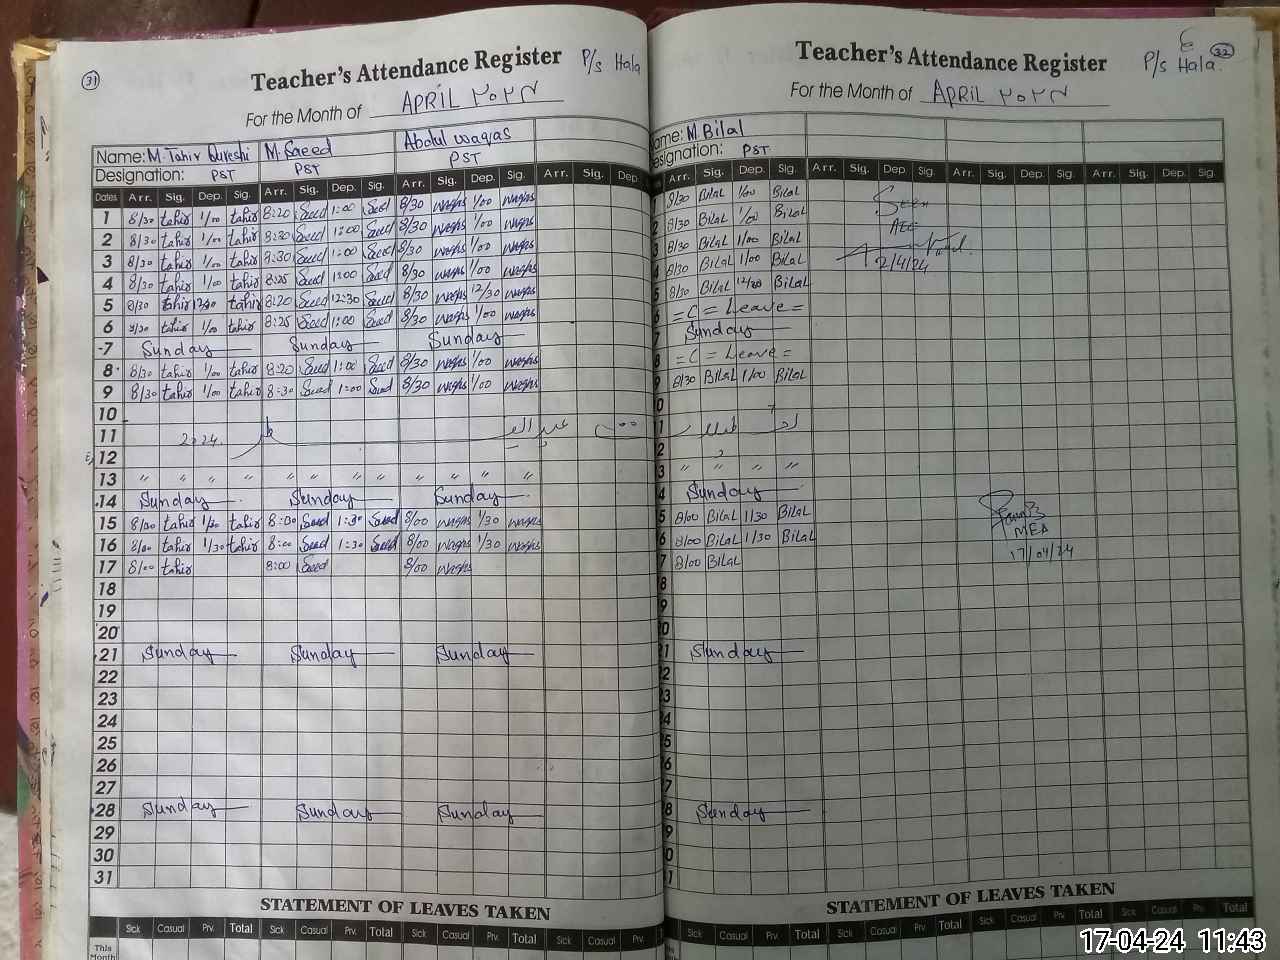 31
Teacher's Attendance Register P/s Hala
For the Month of APRIL ۲۰۲۴
Name: M. Tahir Qureshi M. Saeed Abdul waqas
Designation: PST PST PST
Dates Arr. Sig. Dep. Sig. Arr. Sig. Dep. Sig. Arr. Sig. Dep. Sig. Arr. Sig. Dep.
1 8/30 tahir 1/00 tahir 8:20 Saeed 1:00 Saeed 8/30 waqas 1/00 waqas
2 8/30 tahir 1/00 tahir 8:30 Saeed 1:00 Saeed 8/30 waqas 1/00 waqas
3 8/30 tahir 1/00 tahir 8:30 Saeed 1:00 Saeed 8/30 waqas 1/00 waqas
4 8/30 tahir 1/00 tahir 8:25 Saeed 1:00 Saeed 8/30 waqas 1/00 waqas
5 8/30 tahir 12/30 tahir 8:20 Saeed 12:30 Saeed 8/30 waqas 12/30 waqas
6 8/30 tahir 1/00 tahir 8:25 Saeed 1:00 Saeed 8/30 waqas 1/00 waqas
7 Sunday Sunday Sunday
8 8/30 tahir 1/00 tahir 8:20 Saeed 1:00 Saeed 8/30 waqas 1/00 waqas
9 8/30 tahir 1/00 tahir 8:30 Saeed 1:00 Saeed 8/30 waqas 1/00 waqas
10
11 2024
12
13 " " " " " " " " " " " "
14 Sunday Sunday Sunday
15 8/00 tahir 1/30 tahir 8:00 Saeed 1:30 Saeed 8/00 waqas 1/30 waqas
16 8/00 tahir 1/30 tahir 8:00 Saeed 1:30 Saeed 8/00 waqas 1/30 waqas
17 8/00 tahir 8:00 Saeed 8/00 waqas
18
19
20
21 Sunday Sunday Sunday
22
23
24
25
26
27
28 Sunday Sunday Sunday
29
30
31
STATEMENT OF LEAVES TAKEN
Sick Casual Prv. Total Sick Casual Prv. Total Sick Casual Prv. Total Sick Casual Prv.
This Month
32
Teacher's Attendance Register P/s Hala.
For the Month of APRIL ۲۰۲۴
ame: M. Bilal
esignation: PST
Arr. Sig. Dep. Sig. Arr. Sig. Dep. Sig. Arr. Sig. Dep. Sig. Arr. Sig. Dep. Sig.
8/30 Bilal 1/00 Bilal
2 8/30 Bilal 1/00 Bilal Seen
3 8/30 Bilal 1/00 Bilal
4 8/30 Bilal 1/00 Bilal
5 8/30 Bilal 12/30 Bilal 2/4/24
6 = C = Leave =
7 Sunday
8 = C = Leave =
9 8/30 Bilal 1/00 Bilal
0
1
2
3 " " " "
4 Sunday
5 8/00 Bilal 1/30 Bilal
6 8/00 Bilal 1/30 Bilal MEA
7 8/00 Bilal 17/04/24
8
9
0
1 Sunday
2
3
4
5
6
7
8 Sunday
9
0
1
STATEMENT OF LEAVES TAKEN
Sick Casual Prv. Total Sick Casual Prv. Total Sick Casual Prv. Total Sick Casual Prv. Total
17-04-24 11:43